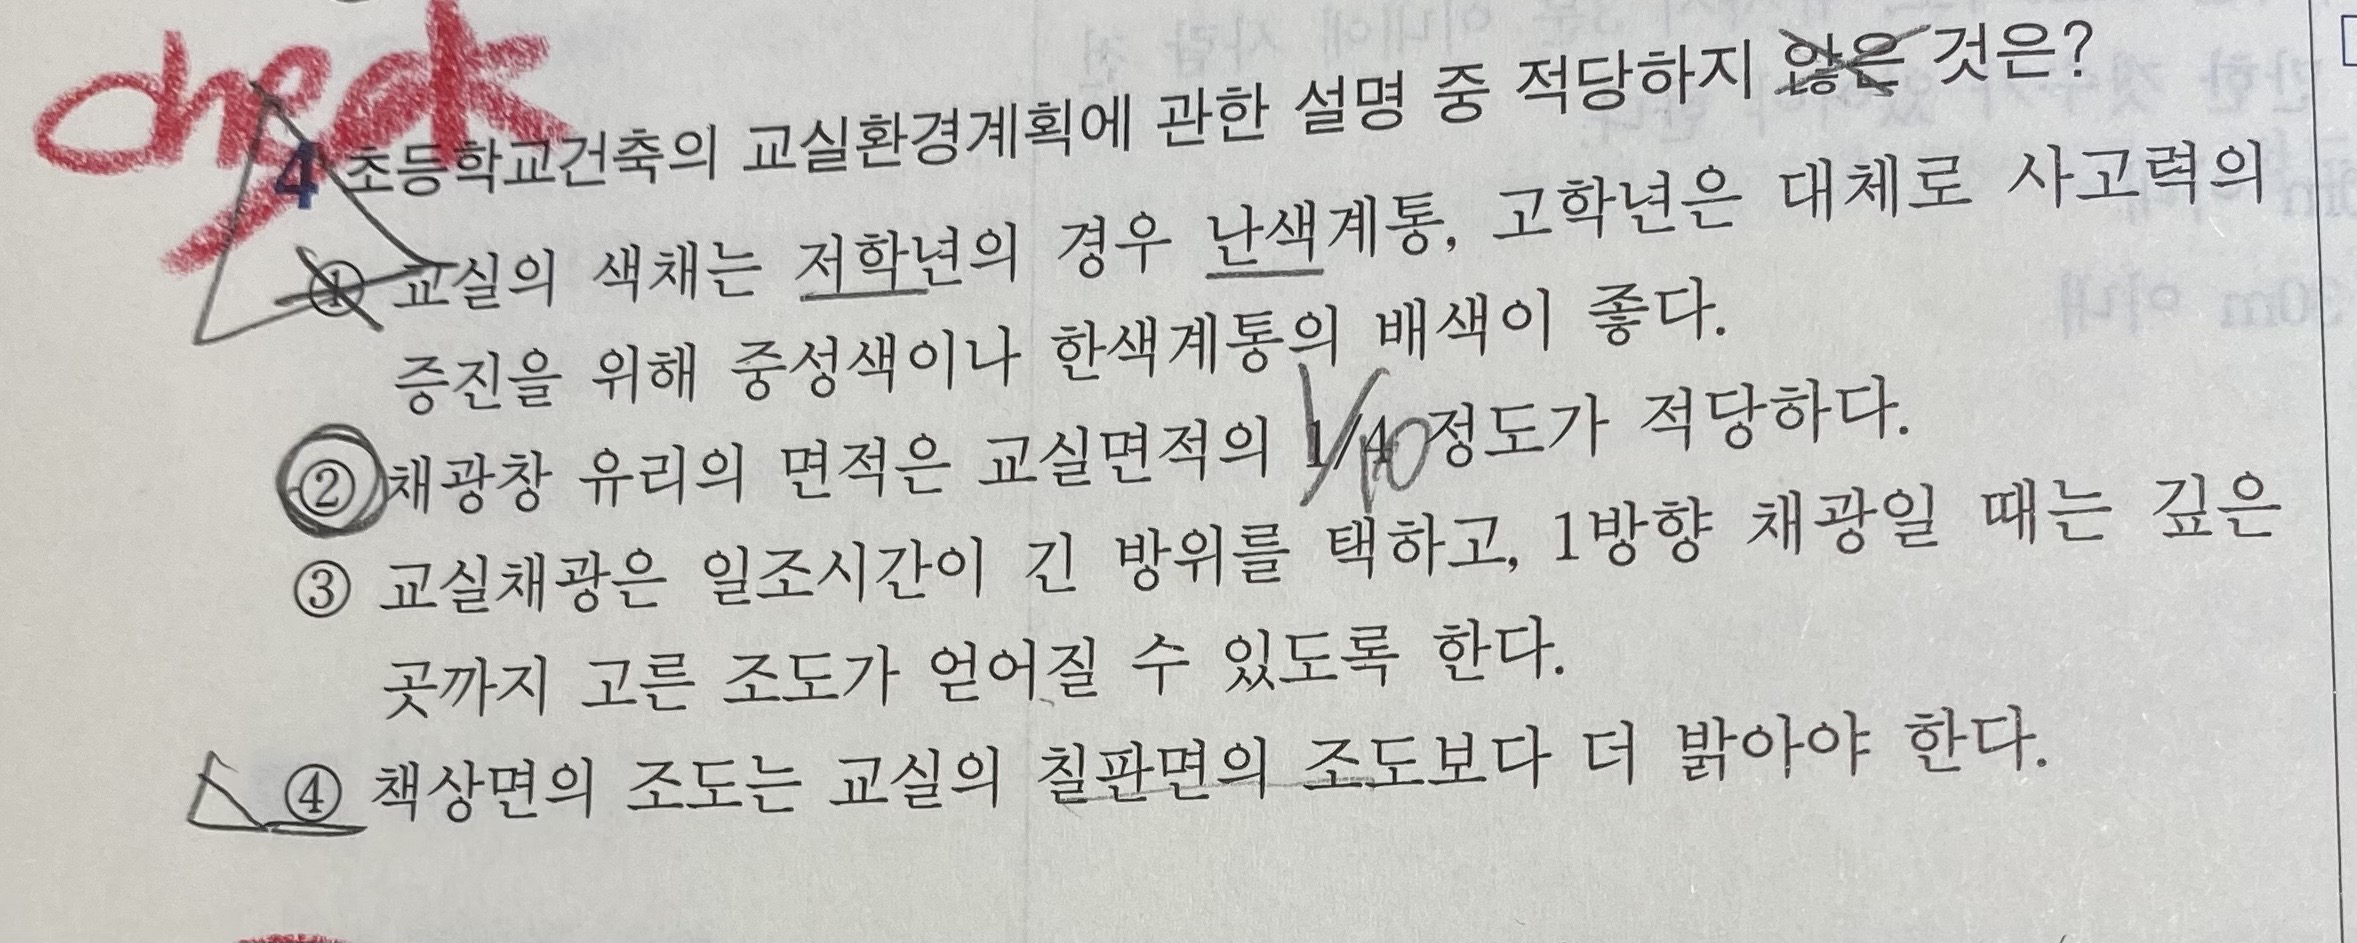 check
4 초등학교건축의 교실환경계획에 관한 설명 중 적당하지 않은 것은?
① 교실의 색채는 저학년의 경우 난색계통, 고학년은 대체로 사고력의
증진을 위해 중성색이나 한색계통의 배색이 좋다.
② 채광창 유리의 면적은 교실면적의 1/4 정도가 적당하다.
1/10
③ 교실채광은 일조시간이 긴 방위를 택하고, 1방향 채광일 때는 깊은
곳까지 고른 조도가 얻어질 수 있도록 한다.
④ 책상면의 조도는 교실의 칠판면의 조도보다 더 밝아야 한다.